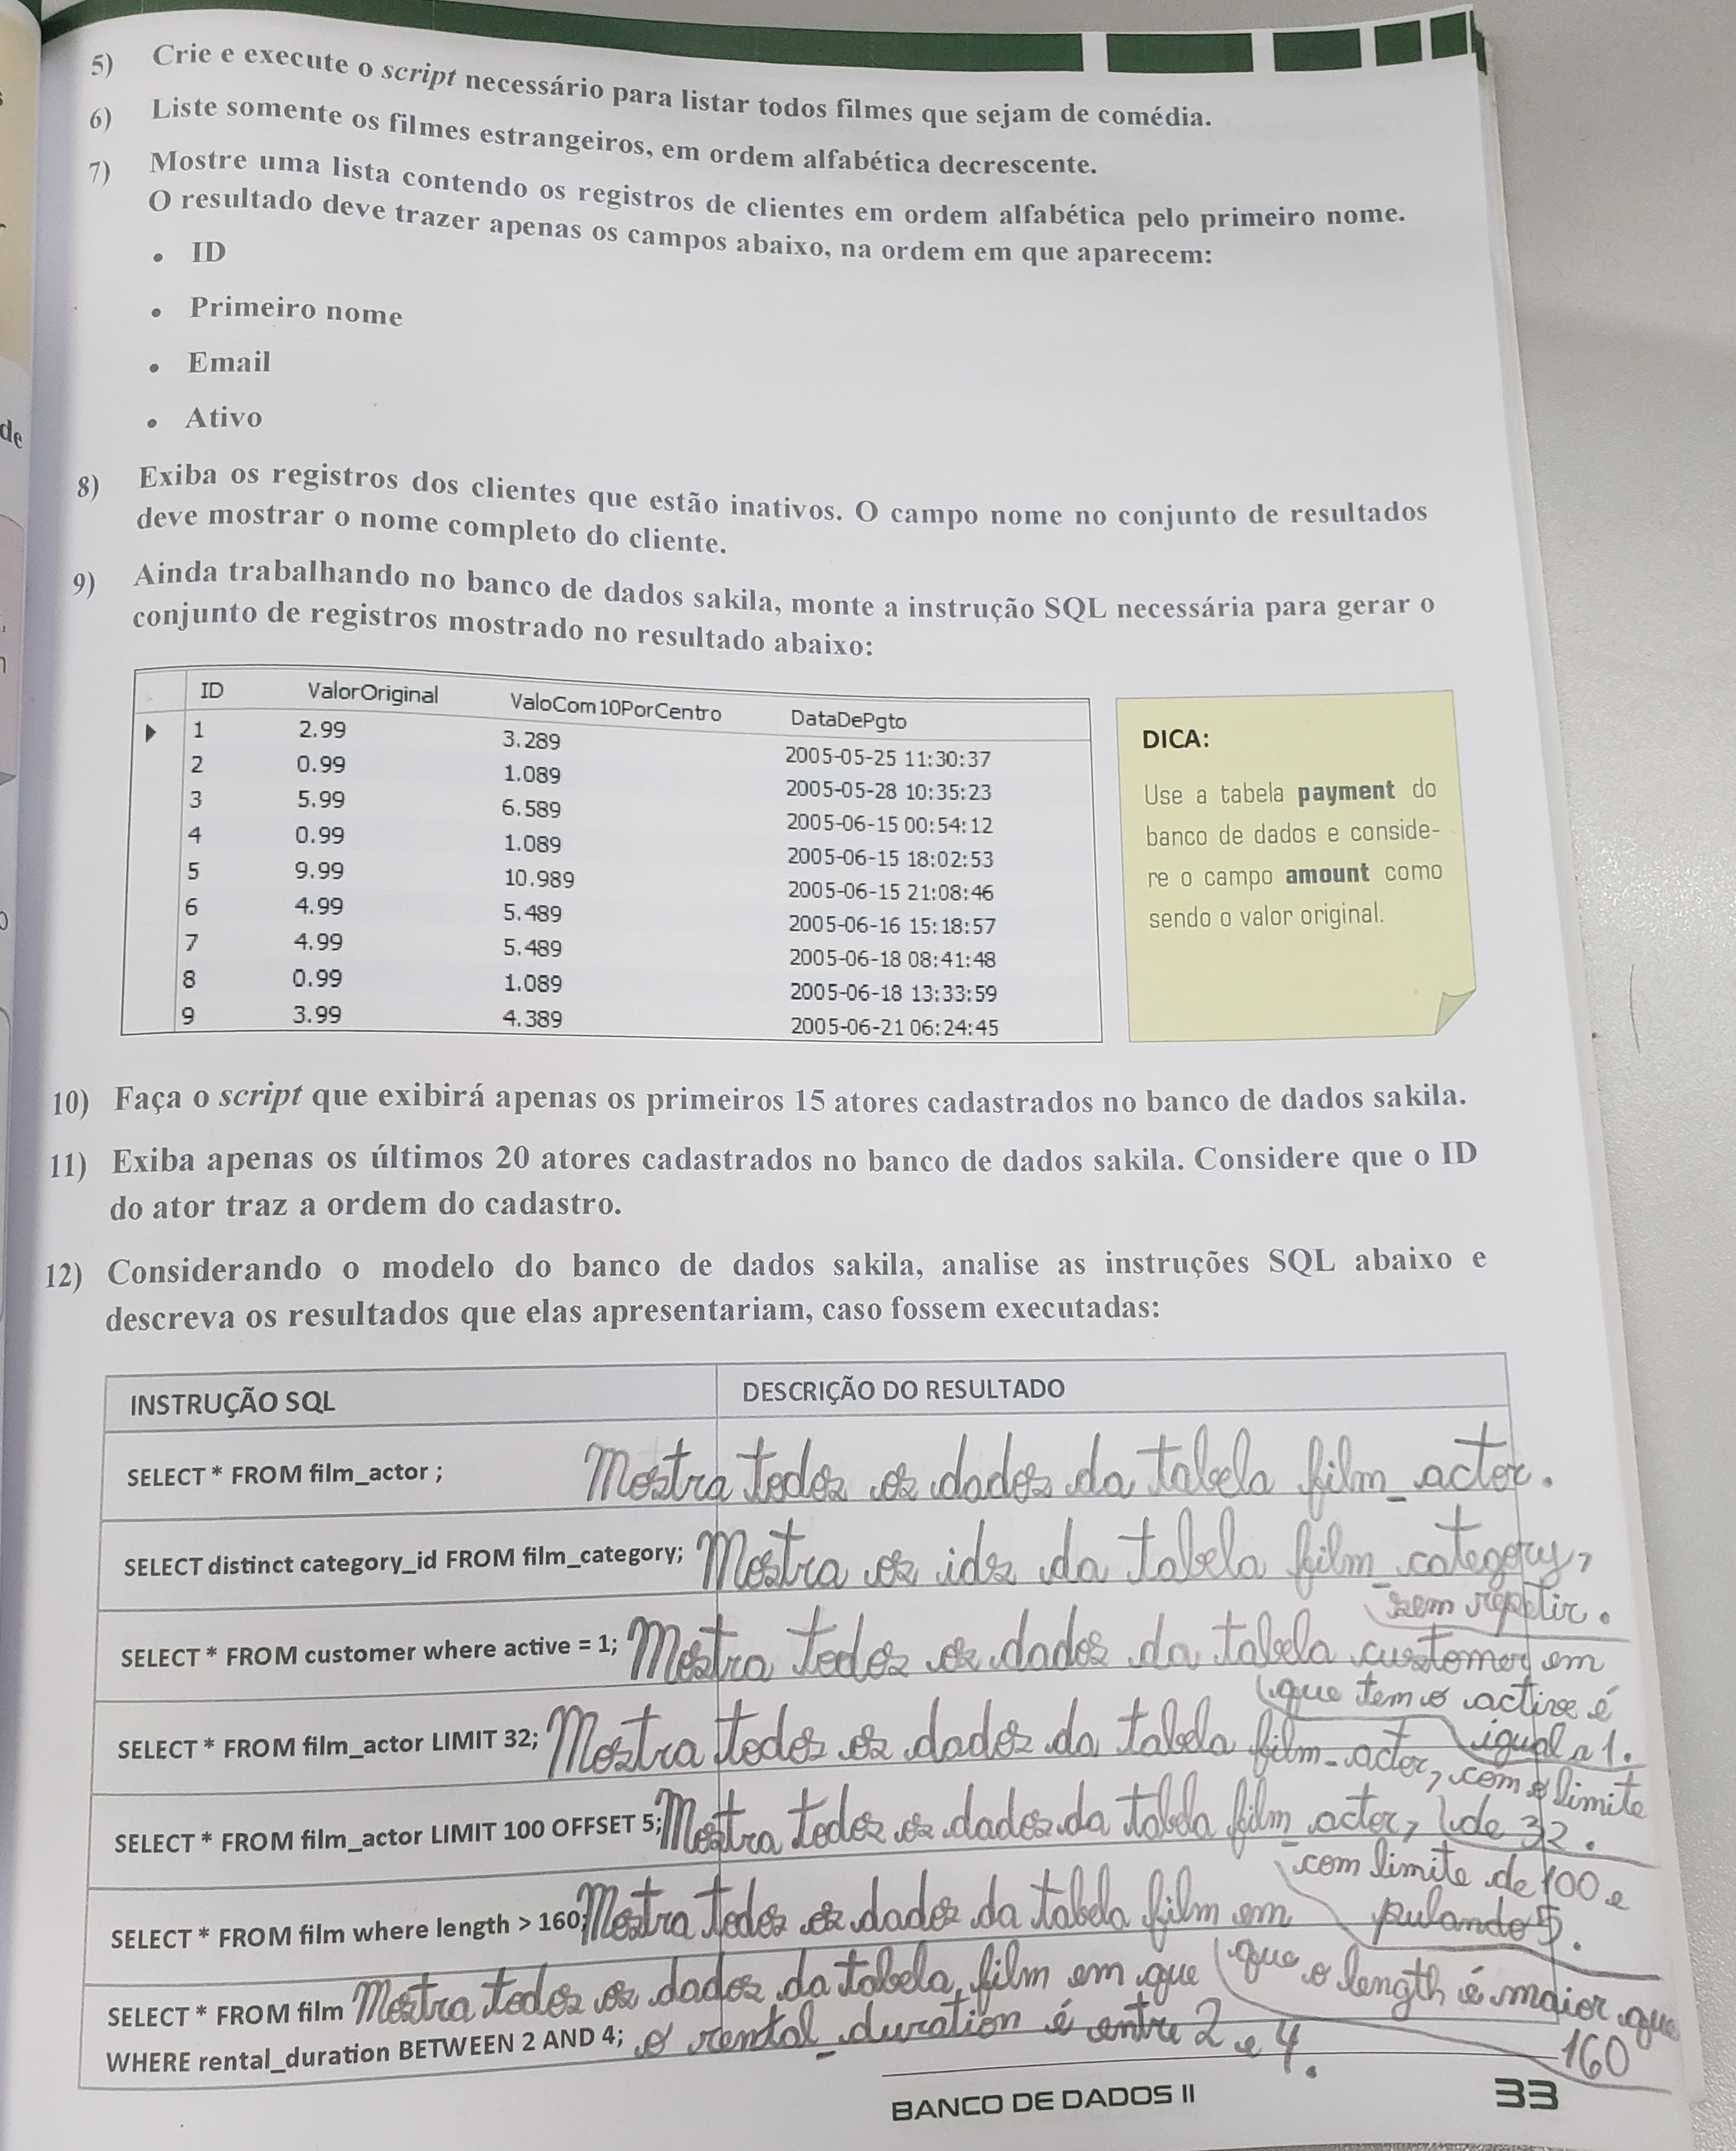 5) Crie e execute o script necessário para listar todos filmes que sejam de comédia.
6) Liste somente os filmes estrangeiros, em ordem alfabética decrescente.
7) Mostre uma lista contendo os registros de clientes em ordem alfabética pelo primeiro nome.
O resultado deve trazer apenas os campos abaixo, na ordem em que aparecem:
• ID
• Primeiro nome
• Email
• Ativo
de
8) Exiba os registros dos clientes que estão inativos. O campo nome no conjunto de resultados
deve mostrar o nome completo do cliente.
9) Ainda trabalhando no banco de dados sakila, monte a instrução SQL necessária para gerar o
conjunto de registros mostrado no resultado abaixo:
ID ValorOriginal ValoCom10PorCentro DataDePgto
1 2.99 3.289 2005-05-25 11:30:37
2 0.99 1.089 2005-05-28 10:35:23
3 5.99 6.589 2005-06-15 00:54:12
4 0.99 1.089 2005-06-15 18:02:53
5 9.99 10.989 2005-06-15 21:08:46
6 4.99 5.489 2005-06-16 15:18:57
7 4.99 5.489 2005-06-18 08:41:48
8 0.99 1.089 2005-06-18 13:33:59
9 3.99 4.389 2005-06-21 06:24:45
DICA:
Use a tabela payment do
banco de dados e conside-
re o campo amount como
sendo o valor original.
10) Faça o script que exibirá apenas os primeiros 15 atores cadastrados no banco de dados sakila.
11) Exiba apenas os últimos 20 atores cadastrados no banco de dados sakila. Considere que o ID
do ator traz a ordem do cadastro.
12) Considerando o modelo do banco de dados sakila, analise as instruções SQL abaixo e
descreva os resultados que elas apresentariam, caso fossem executadas:
INSTRUÇÃO SQL DESCRIÇÃO DO RESULTADO
SELECT * FROM film_actor ; Mostra todos os dados da tabela film_actor.
SELECT distinct category_id FROM film_category; Mostra os ids da tabela film_category,
sem repetir.
SELECT * FROM customer where active = 1; Mostra todos os dados da tabela customer em
que tem o active é
igual a 1.
SELECT * FROM film_actor LIMIT 32; Mostra todos os dados da tabela film_actor, com o limite
de 32.
SELECT * FROM film_actor LIMIT 100 OFFSET 5; Mostra todos os dados da tabela film_actor,
com limite de 100 e
pulando 5.
SELECT * FROM film where length > 160; Mostra todos os dados da tabela film em
que o length é maior que
160
SELECT * FROM film Mostra todos os dados da tabela film em que
WHERE rental_duration BETWEEN 2 AND 4; o rental_duration é entre 2 e 4.
BANCO DE DADOS II 33